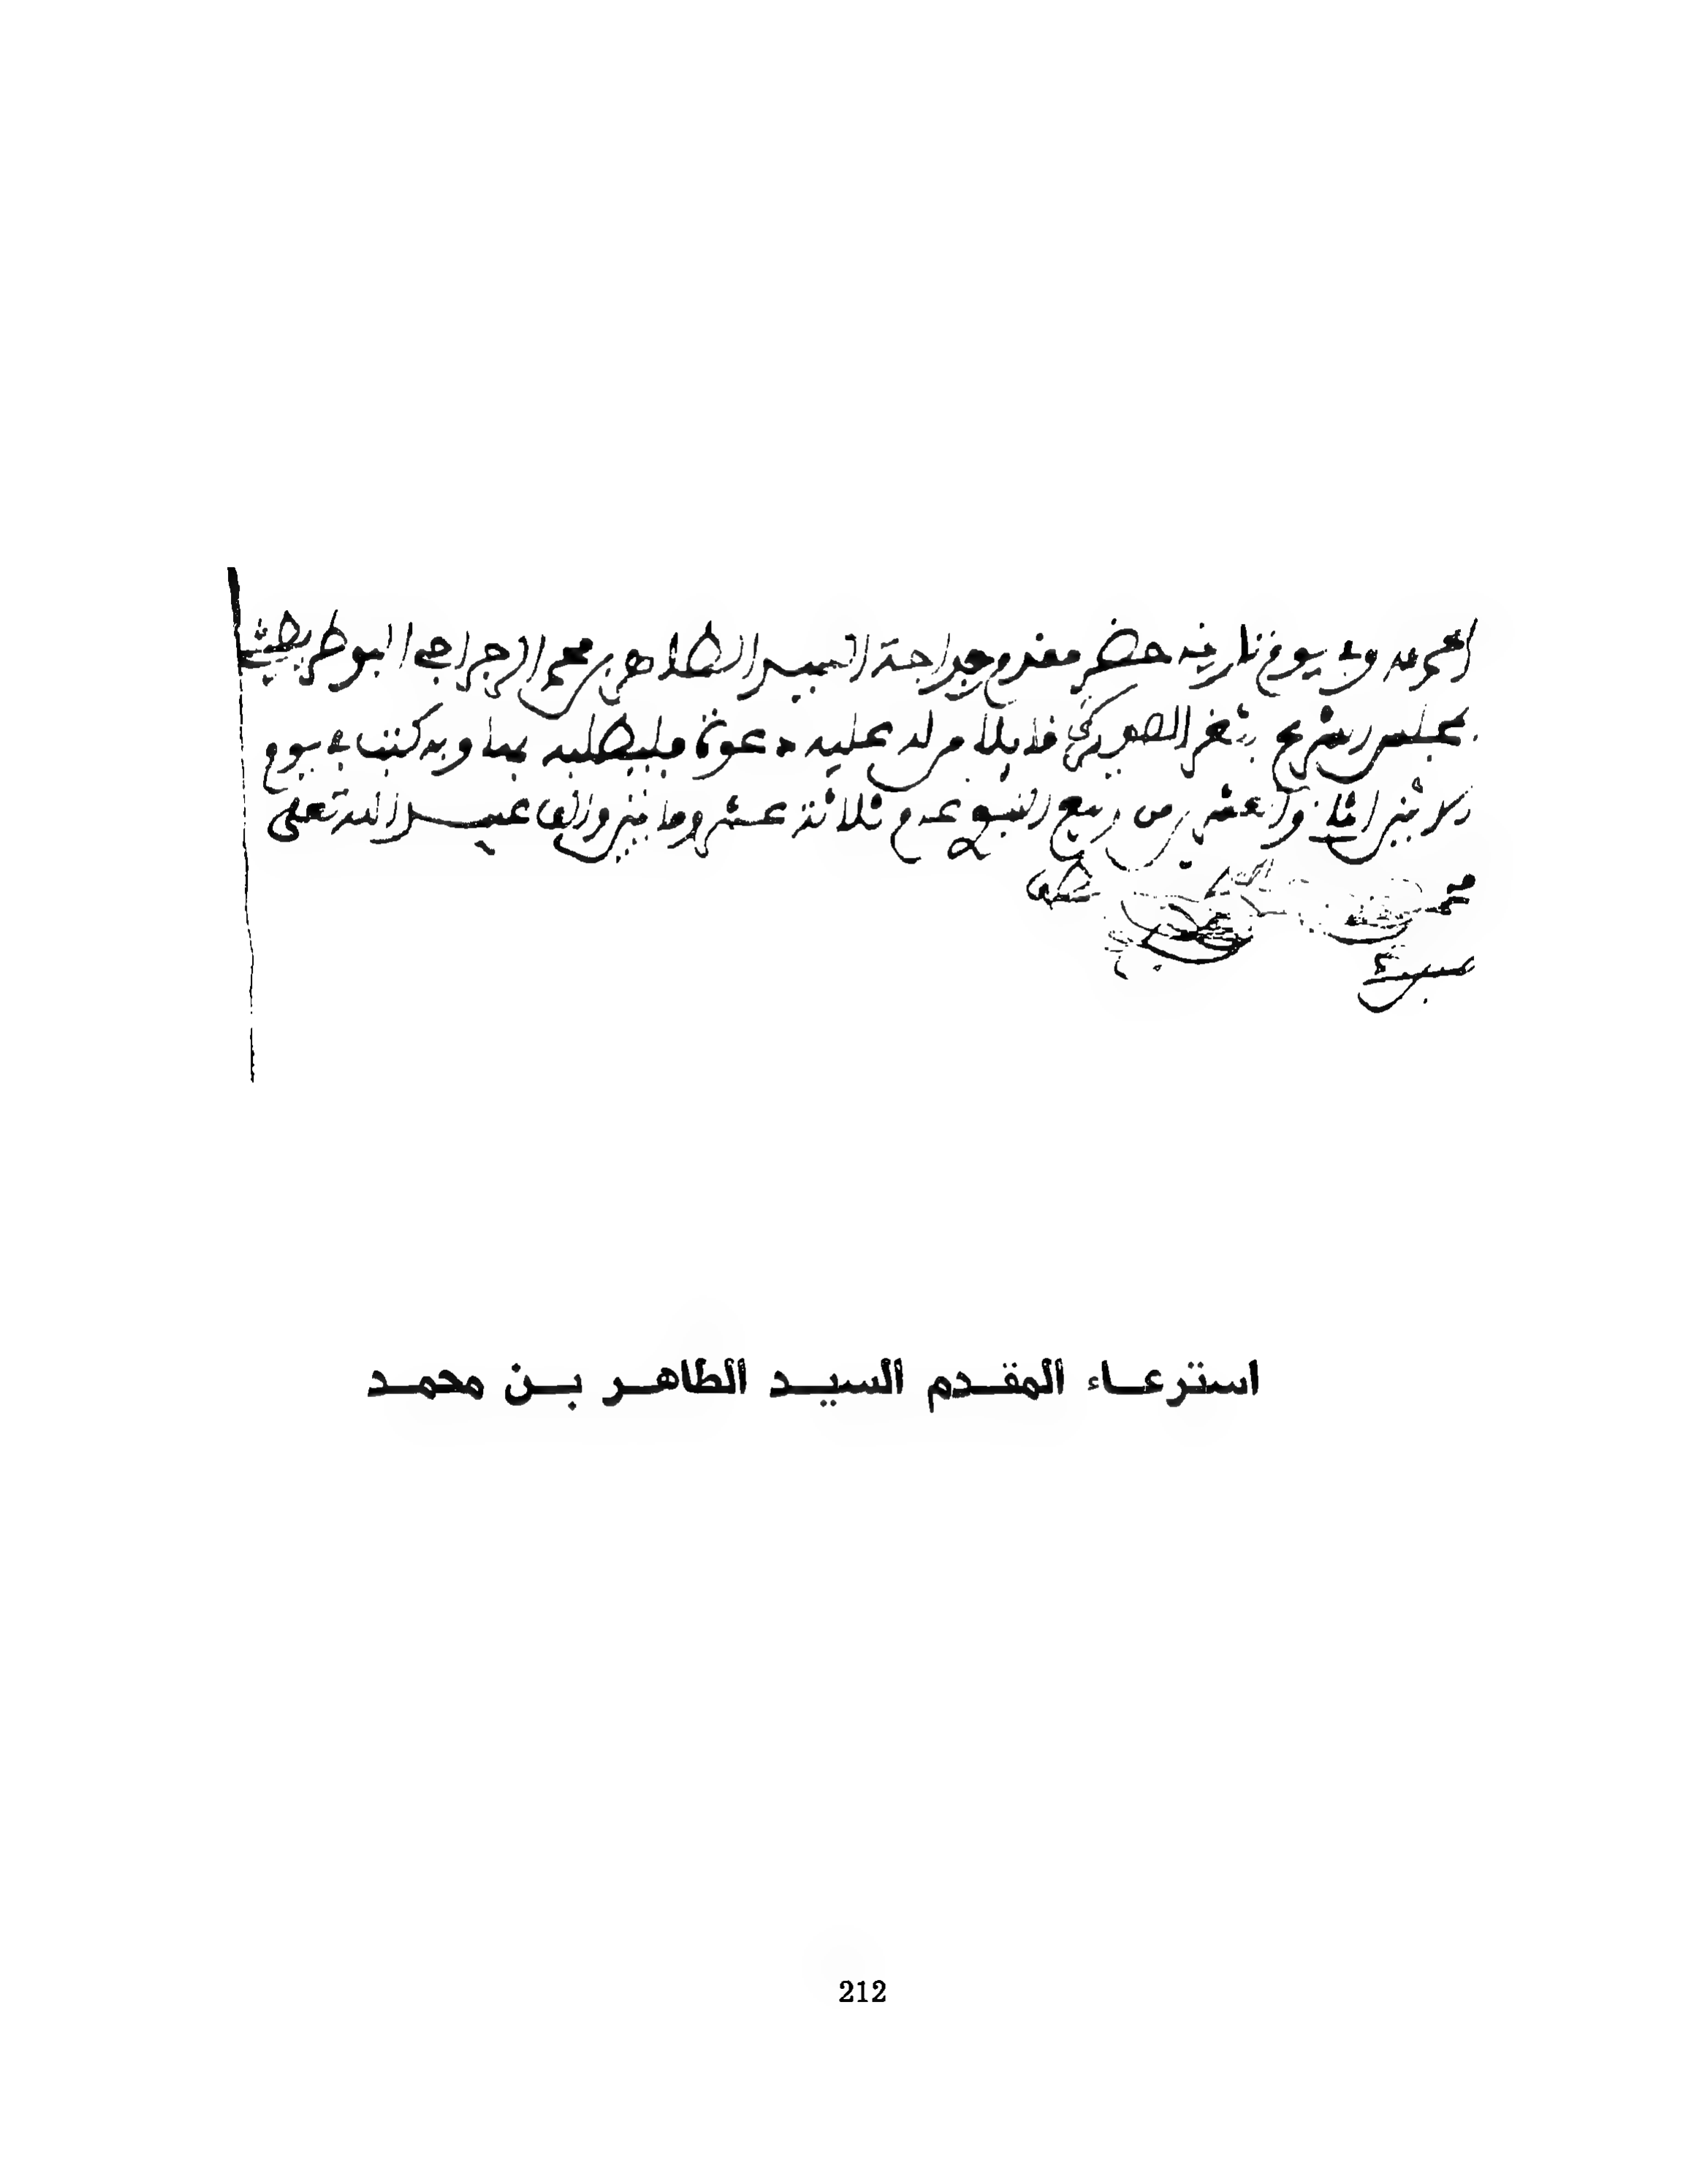 الحمد لله وفي يوم تاريخه حضر مقدم جراجة السيد الطاهر بن محمد الرجراجي
بمجلس الشرع بثغر الصويرة قائلا من له عليه دعوة فليطلبه بها وبه كتب في يوم
الاثنين الثاني والعشرين من ربيع النبوي عام ثلاثة عشر ومائتين والف عبيد الله تعلى
استرعاء المقدم السيد الطاهر بن محمد
212